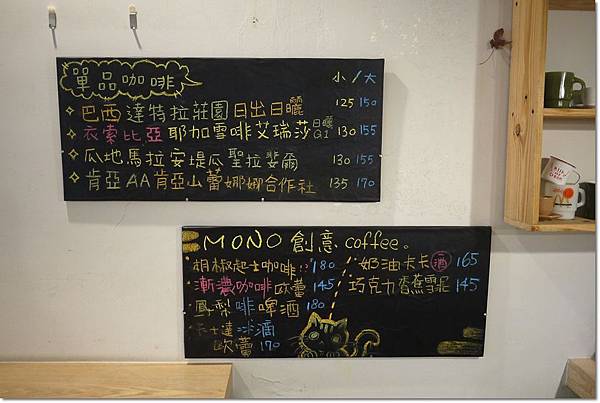 單品咖啡 小/大
巴西 達特拉莊園日出日曬 125 150
衣索比亞 耶加雪啡艾瑞莎日曬G1 130 155
瓜地馬拉安堤瓜聖拉斐爾 130 155
肯亞AA肯亞山蕾娜娜合作社 135 170
MONO 創意 coffee。
胡椒起士咖啡!! 180
漸濃咖啡 歐蕾 145
鳳梨啡啤酒 180
卡士達冰滴
歐蕾 170
奶油卡卡(酒) 165
巧克力香蕉雪泥 145